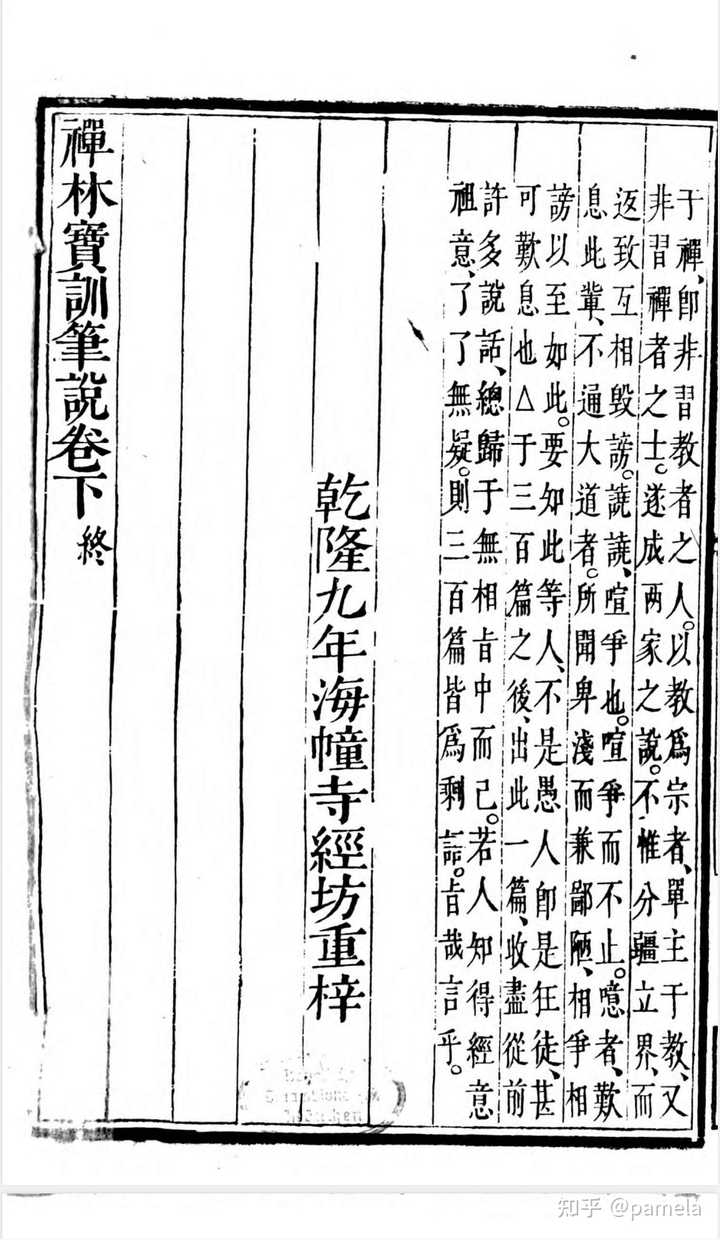 于禪、卽非習教者之人。以教爲宗者、單主于教、又
非習禪者之士。遂成兩家之說。不惟分疆立界、而
返致互相毀謗。譊譊、喧爭也。喧爭而不止。噫者、歎
息此輩、不通大道者。所聞卑淺而兼鄙陋、相爭相
謗以至如此。要如此等人、不是愚人卽是狂徒、甚
可歎息也△于三百篇之後、出此一篇、收盡從前
許多說話、總歸于無相㫖中而已。若人知得經意
祖意、了了無疑。則三百篇皆爲剩話。㫖哉言乎。
乾隆九年海幢寺經坊重梓
禪林寶訓筆說卷下 終
知乎 @pamela